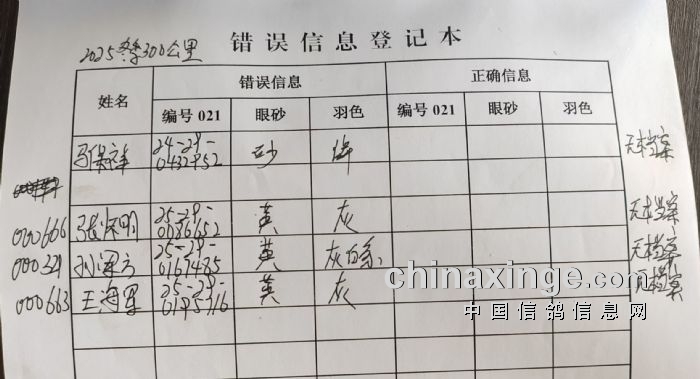 2025秋季300公里
错误信息登记本
姓名 错误信息 正确信息
编号 021 眼砂 羽色 编号 021 眼砂 羽色
马保祥 24-29- 砂 绛 无档案
0432952
000666 张怀明 25-29- 黄 灰 无档案
0086652
000321 孙军方 25-29- 黄 灰白条 无档案
0167485
000663 王海军 25-29- 黄 灰 无档案
0195716
chinaxinge.com
中国信鸽信息网